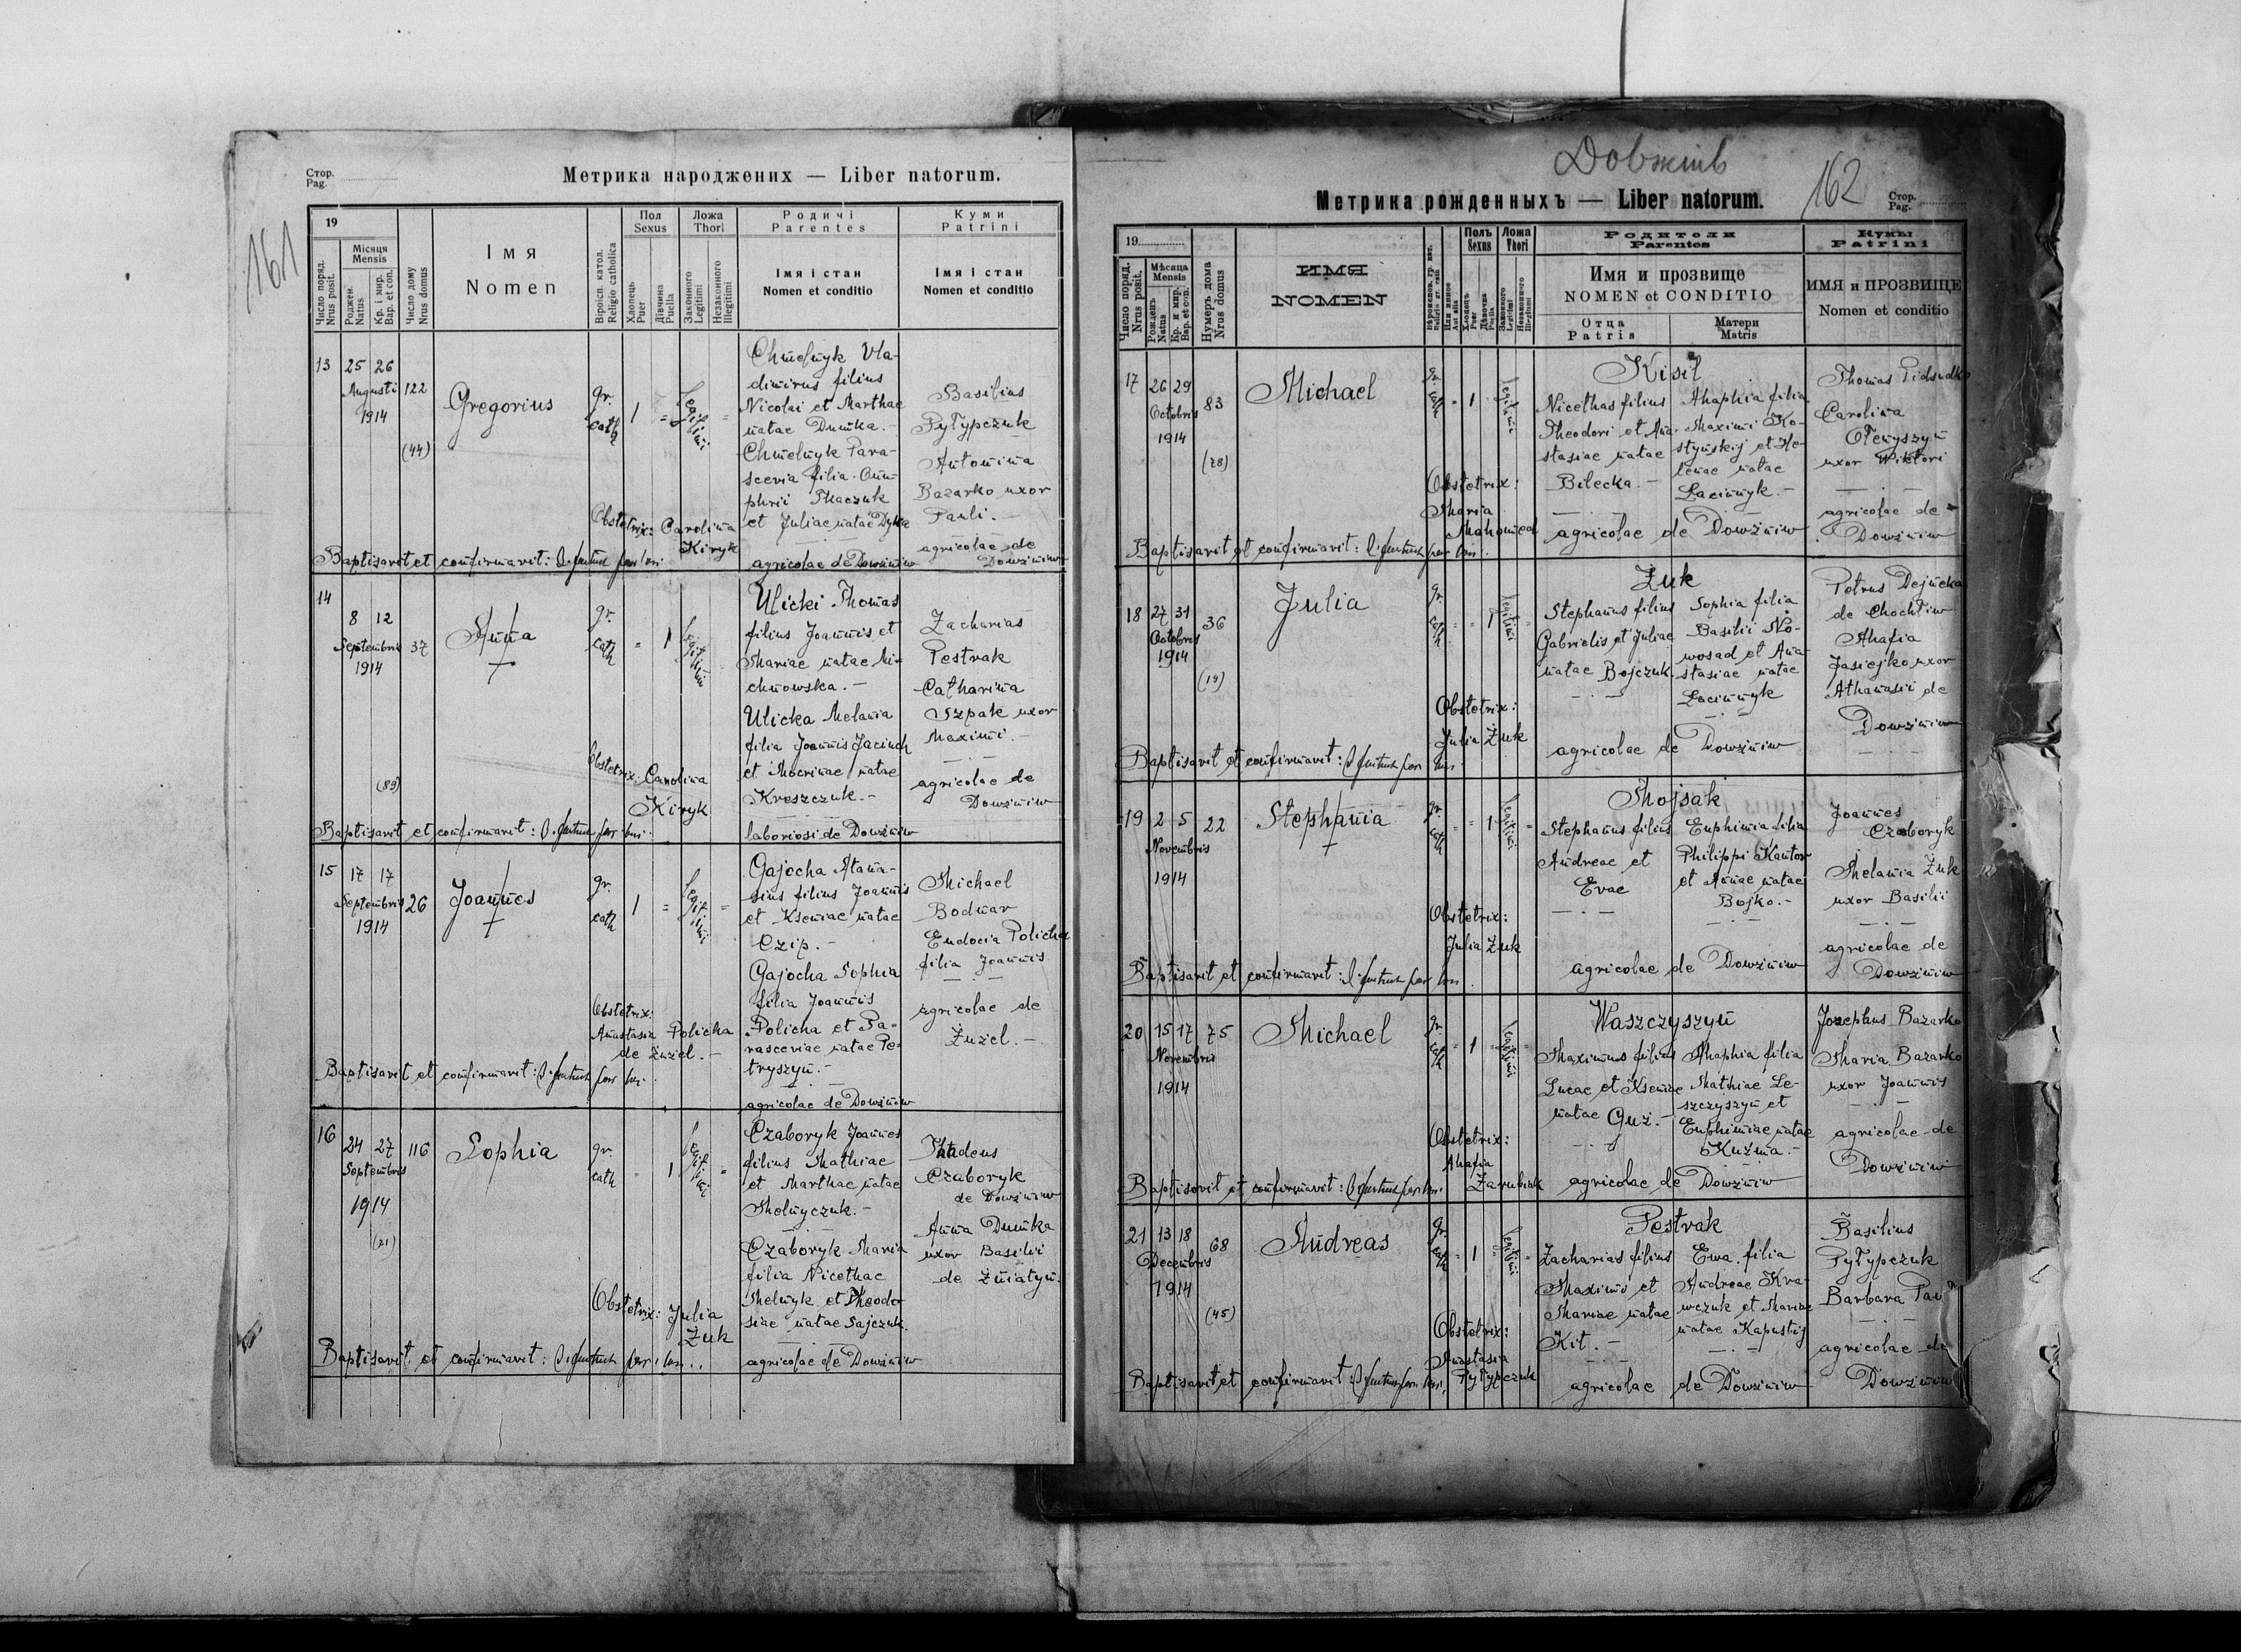 161
Стор.
Pag.
Метрика народжених — Liber natorum.
19
Число поряд.
Nrus posit.
Місяця
Mensis
Роджен.
Natus
Кр. і мир.
Bap. et con.
Число дому
Nrus domus
Імя
Nomen
Віроісп. катол.
Religio catholica
Пол
Sexus
Хлопець
Puer
Дівчина
Puella
Ложа
Thori
Законного
Legitimi
Незаконного
Illegitimi
Родичі
Parentes
Імя і стан
Nomen et conditio
Куми
Patrini
Імя і стан
Nomen et conditio
13 25 26
Augusti 122
1914
(44)
Gregorius
gr.
cath
1 =
Legitimi
Chmelnyk Vla-
dimirus filius
Nicolai et Marthae
natae Dumka.-
Chmelnyk Para-
scevia filia Onu-
phrii Tkaczuk
et Juliae natae Dyka
agricolae de Dowżniw
Basilius
Pyłypczuk
Antonina
Bazarko uxor
Pauli.-
agricolae de
Dowżniw
Obstetrix: Carolina
Kiryk
Baptisavit et confirmavit:
14
8 12
Septembris 37
1914
(89)
Anna
gr.
cath
= 1
Legitimi
Ulicki Thomas
filius Joannis et
Mariae natae Mi-
chnowska.-
Ulicka Melania
filia Joannis Jacinch
et Mocrinae natae
Kreszczuk.-
laboriosi de Dowżniw
Zacharias
Pestrak
Catharina
Szpak uxor
Maximi.-
agricolae de
Dowżniw
Obstetrix: Carolina
Kiryk
Baptisavit et confirmavit:
15 17 17
Septembris 26
1914
Joannes
gr.
cath
1 =
Legitimi
Gajocha Atana-
sius filius Joannis
et Kseniae natae
Czip.-
Gajocha Sophia
filia Joannis
Policha et Pa-
rasceviae natae Pe-
tryszyn.-
agricolae de Dowżniw
Michael
Bodnar
Eudocia Policha
filia Joannis
agricolae de
Żużel.-
Obstetrix:
Anastasia Policha
de Żużel.-
Baptisavit et confirmavit:
16 24 27 116
Septembris
1914
(21)
Sophia
gr.
cath
= 1
Legitimi
Czaboryk Joannes
filius Mathiae
et Marthae natae
Melnyczuk.-
Czaboryk Maria
filia Nicethae
Melnyk et Theodo-
siae natae Sajczuk.
agricolae de Dowżniw
Thadeus
Czaboryk
de Dowżniw
Anna Dumka
uxor Basilii
de Żniatyn.
Obstetrix: Julia
Żuk
Baptisavit et confirmavit:
Довжнів
162
Метрика рожденныхъ — Liber natorum.
Стор.
Pag.
19
Число поряд.
Nrus posit.
Мѣсяца
Mensis
Рожденъ
Natus
Кр. и мир.
Bap. et con.
Нумеръ дома
Nrus domus
ИМЯ
NOMEN
Полъ
Sexus
Хлопецъ
Puer
Дѣвочка
Puella
Ложа
Thori
Законного
Legitimi
Незаконного
Illegitimi
Родители
Parentes
Имя и прозвище
NOMEN et CONDITIO
Отца
Patris
Матери
Matris
Кумы
Patrini
ИМЯ и ПРОЗВИЩЕ
Nomen et conditio
17 26 29
Octobris 83
1914
(28)
Michael
gr.
cath
= 1
Legitimi
Kisil
Nicethas filius
Theodori et Ana-
stasiae natae
Bilecka.-
Ahaphia filia
Maximi Ko-
styńskij et He-
lenae natae
Łacinnyk.-
agricolae de Dowżniw
Thomas Pidsudko
Carolina
Ołenyszyn
uxor Wiktori
agricolae de
Dowżniw
Obstetrix:
Maria
Mahomed
Baptisavit et confirmavit:
18 27 31 36
Octobris
1914
(19)
Julia
gr.
cath
1
Legitimi
Żuk
Stephanus filius
Gabrielis et Juliae
natae Bojczuk.
Sophia filia
Basilii No-
wosad et Ana-
stasiae natae
Łacinnyk
agricolae de Dowżniw
Petrus Dejneka
de Chochłiw
Ahafia
Jasiejko uxor
Athanasii de
Dowżniw
Obstetrix:
Julia Żuk
Baptisavit et confirmavit:
19 2 5 22
Novembris
1914
Stephania
gr.
cath
1
Legitimi
Mojsak
Stephanus filius
Andreae et
Evae
Euphimia filia
Philippi Kantor
et Annae natae
Bojko.-
agricolae de Dowżniw
Joannes
Czaboryk
Melania Żuk
uxor Basilii
agricolae de
Dowżniw
Obstetrix:
Julia Żuk
Baptisavit et confirmavit:
20 15 17 75
Novembris
1914
Michael
gr.
cath
= 1
Legitimi
Waszczyszyn
Maximus filius
Lucae et Kseniae
natae Guz.-
Ahaphia filia
Mathiae Le-
szczyszyn et
Euphimiae natae
Kuźma.-
agricolae de Dowżniw
Josephus Bazarko
Maria Bazarko
uxor Joannis
agricolae de
Dowżniw
Obstetrix:
Ahafia
Zarubiak
Baptisavit et confirmavit:
21 13 18 68
Decembris
1914
(45)
Andreas
gr.
cath
= 1
Legitimi
Pestrak
Zacharias filius
Maximi et
Mariae natae
Kit.-
Ewa filia
Andreae Kra-
wczuk et Mariae
natae Kapustij
agricolae de Dowżniw
Basilius
Pyłypczuk
Barbara
agricolae de
Dowżniw
Obstetrix:
Anastasia
Pyłypczuk
Baptisavit et confirmavit: